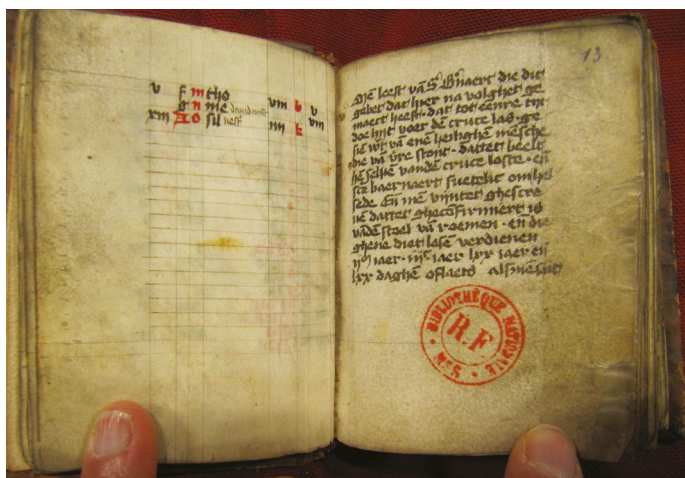 v f m tho viii b v
g n me
xiii A o sil iiii k viii
13
Mē leest vā S. Bn̄aert die dit
gebet dat hier na volghet ge
maect heeft. dat tot eenre tijt
doe hijt voer dē cruce las. ge
siē wt vā enē heilighē mēsche
die vā v̄re stont. dattet beelt
hē selvē vandē cruce loste. eñ
sc̄tē baernaert suetelic omhel
sede. Eñ mē vijntet ghescre
uē dattet ghecōfirmiert is
vādē stoel vā roemen. eñ die
ghene diet lesē verdienen
iaer. iaer lxx iaer eñ
lxx daghen oflaets alsmēt
BIBLIOTHÈQUE NATIONALE
R.F
MSS